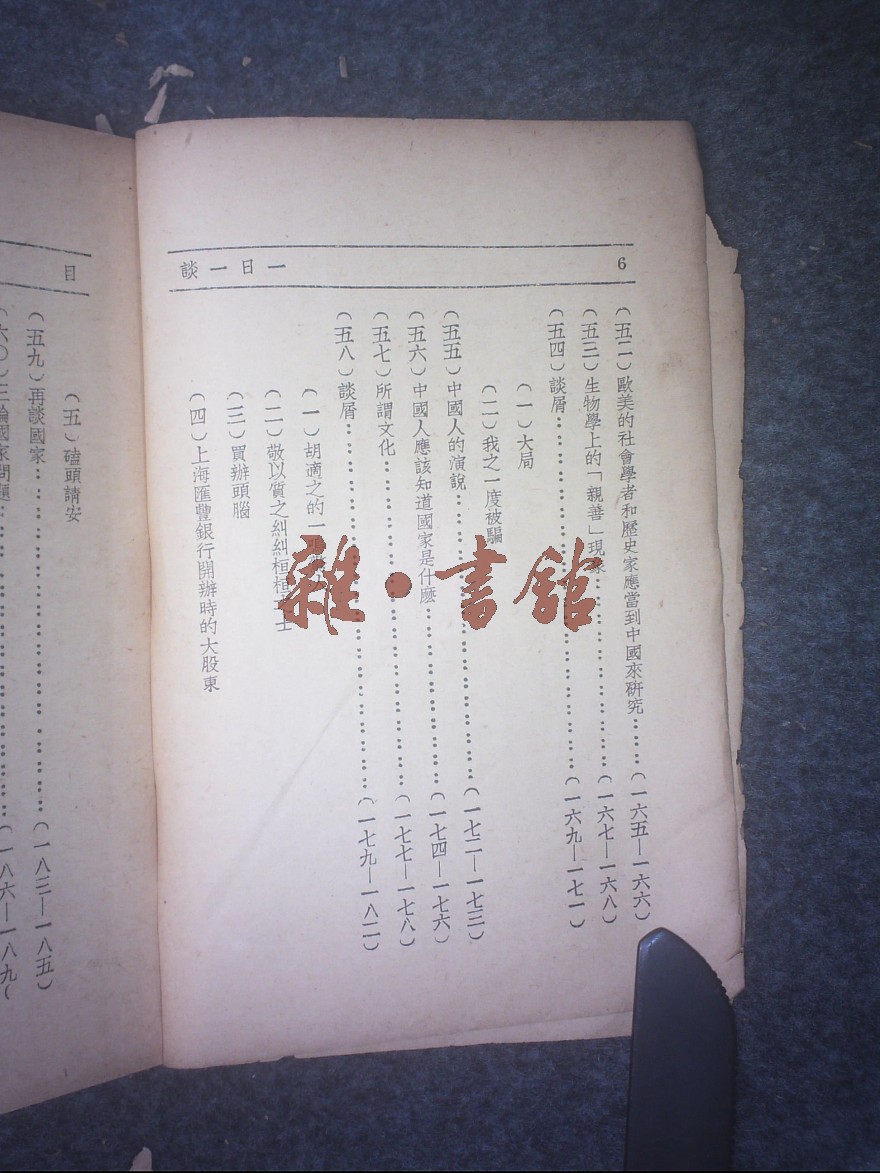 6
一日一談
(五二)歐美的社會學者和歷史家應當到中國來硏究………(一六五—一六六)
(五三)生物學上的「親善」現象………(一六七—一六八)
(五四)談屑………(一六九—一七一)
(一)大局
(二)我之一度被騙
(五五)中國人的演說………(一七二—一七三)
(五六)中國人應該知道國家是什麽………(一七四—一七六)
(五七)所謂文化………(一七七—一七八)
(五八)談屑………(一七九—一八二)
(一)胡適之的一
(二)敬以質之糾糾桓桓 士
(三)買辦頭腦
(四)上海匯豐銀行開辦時的大股東
雜·書館
目
(五)磕頭請安
(五九)再談國家………(一八三—一八五)
(六〇)三論國家問題………(一八六—一八九(